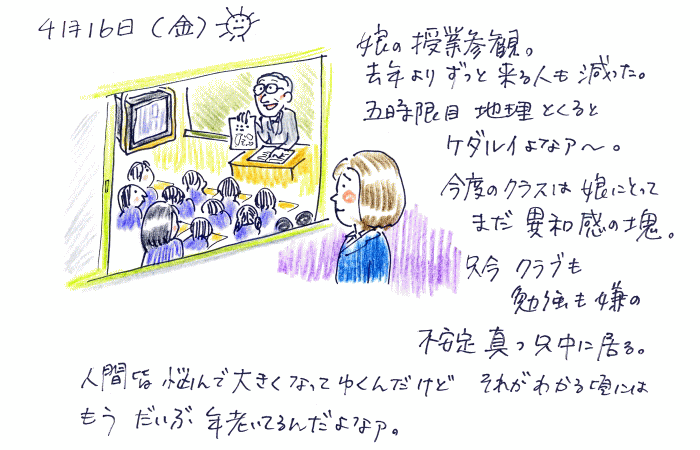 4月16日（金）
娘の授業参観。
去年よりずっと来る人も減った。
五時限目 地理とくると
ケダルイよなァ〜。
今度のクラスは娘にとって
まだ異和感の塊。
只今クラブも
勉強も嫌の
不安定真っ只中に居る。
人間皆悩んで大きくなってゆくんだけど それがわかる頃には
もうだいぶ年老いてるんだよなァ。